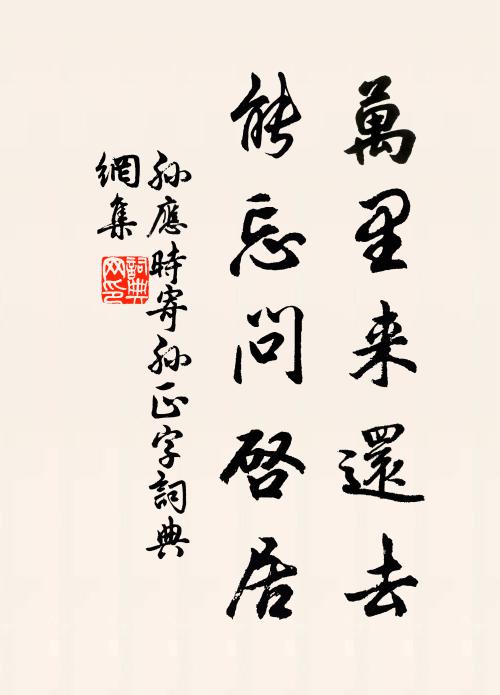 萬里来還去
能忘問啓居
孫應時寄孫正字詞典
網集
詞典
网印